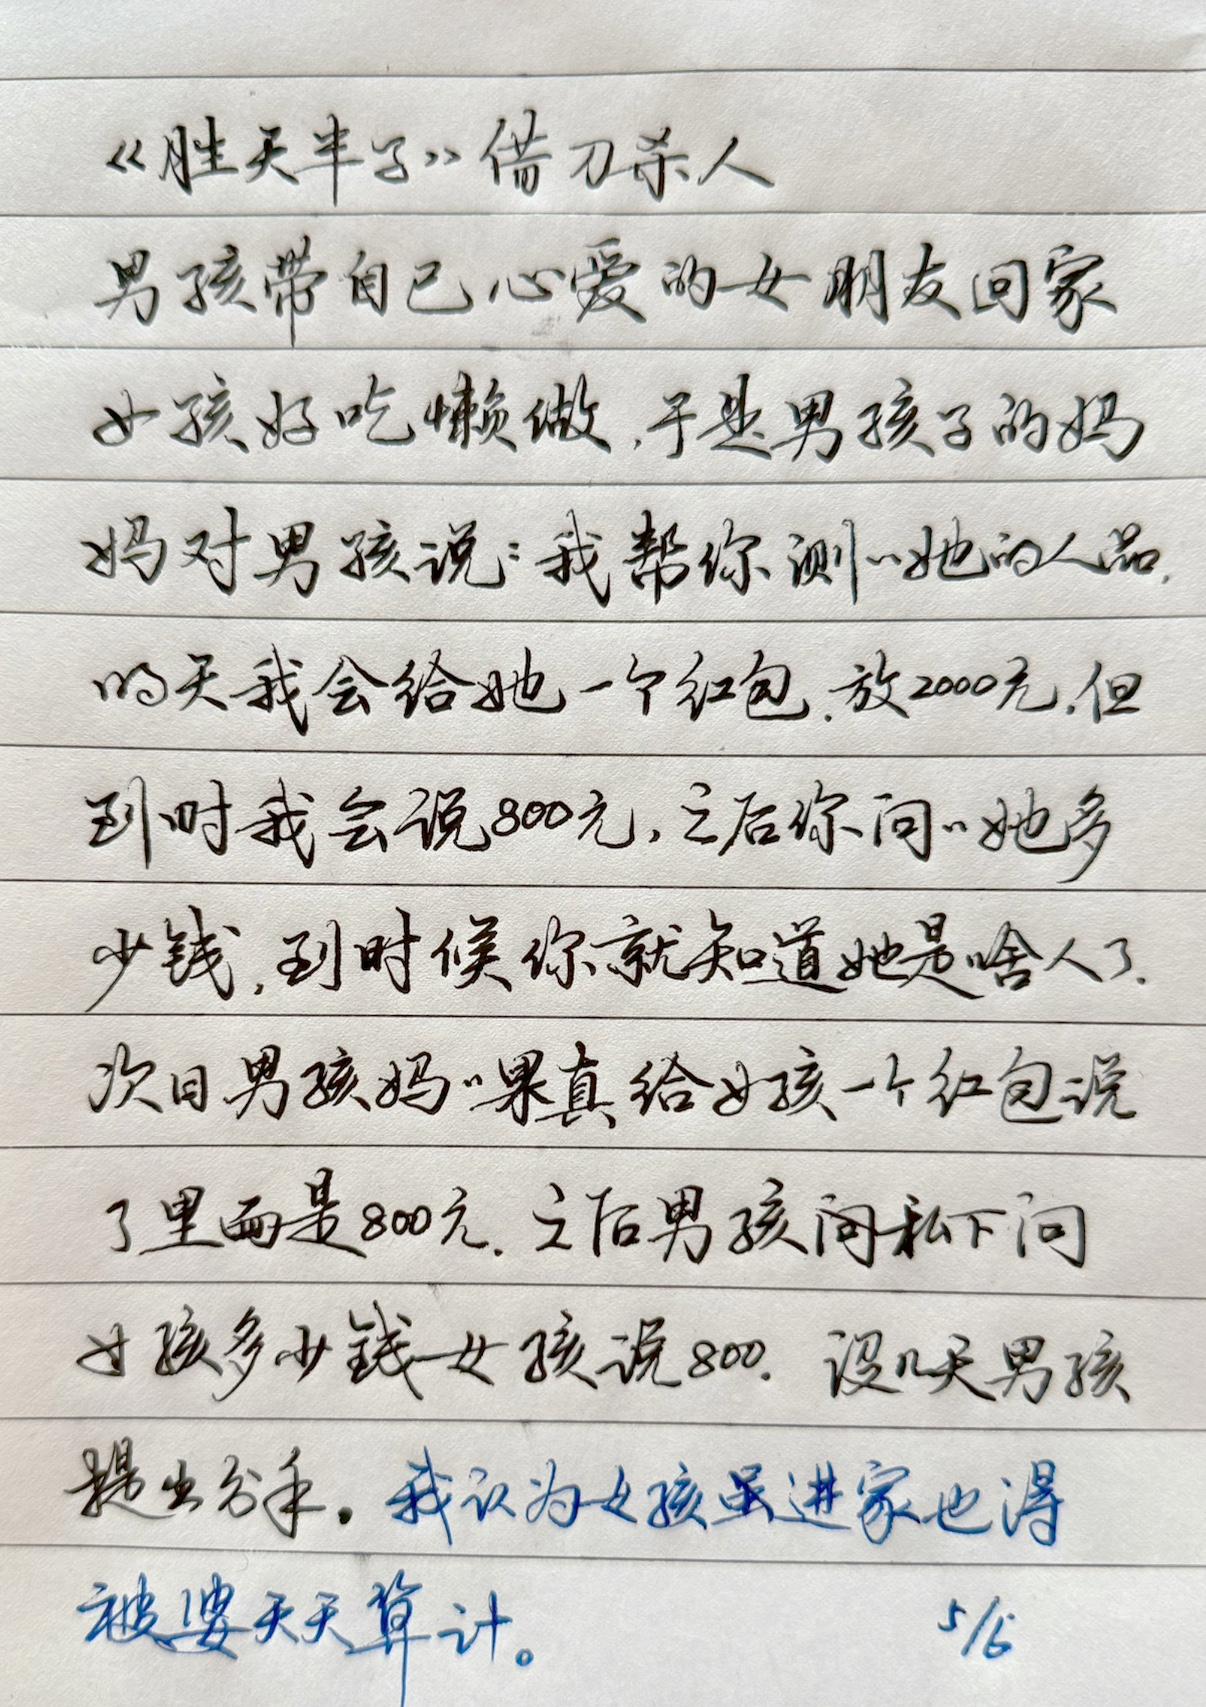 《胜天半子》借刀杀人
男孩带自己心爱的女朋友回家
女孩好吃懒做,于是男孩子的妈
妈对男孩说:我帮你测〃她的人品.
明天我会给她一个红包.放2000元.但
到时我会说800元,之后你问〃她多
少钱,到时候你就知道她是啥人了.
次日男孩妈〃果真给女孩一个红包说
了里面是800元.之后男孩问私下问
女孩多少钱女孩说800. 没几天男孩
提出分手.我认为女孩虽进家也得
被婆天天算计。 5/6